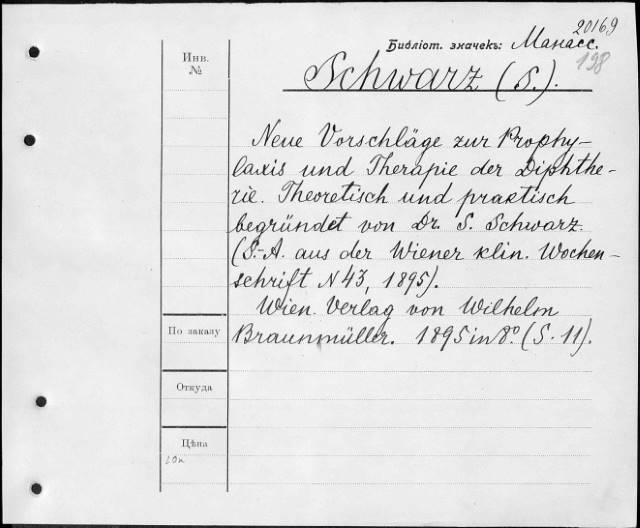 20169
Библіот. значекъ: Манасс.
198
Инв.
№
Schwarz (S.).
Neue Vorschläge zur Prophy-
laxis und Therapie der Diphthe-
rie. Theoretisch und praktisch
begründet von Dr. S. Schwarz.
(S.-A. aus der Wiener klin. Wochen-
schrift N 43, 1895).
Wien. Verlag von Wilhelm
По заказу
Braunmüller. 1895 in 8º. (S. 11).
Откуда
Цѣна